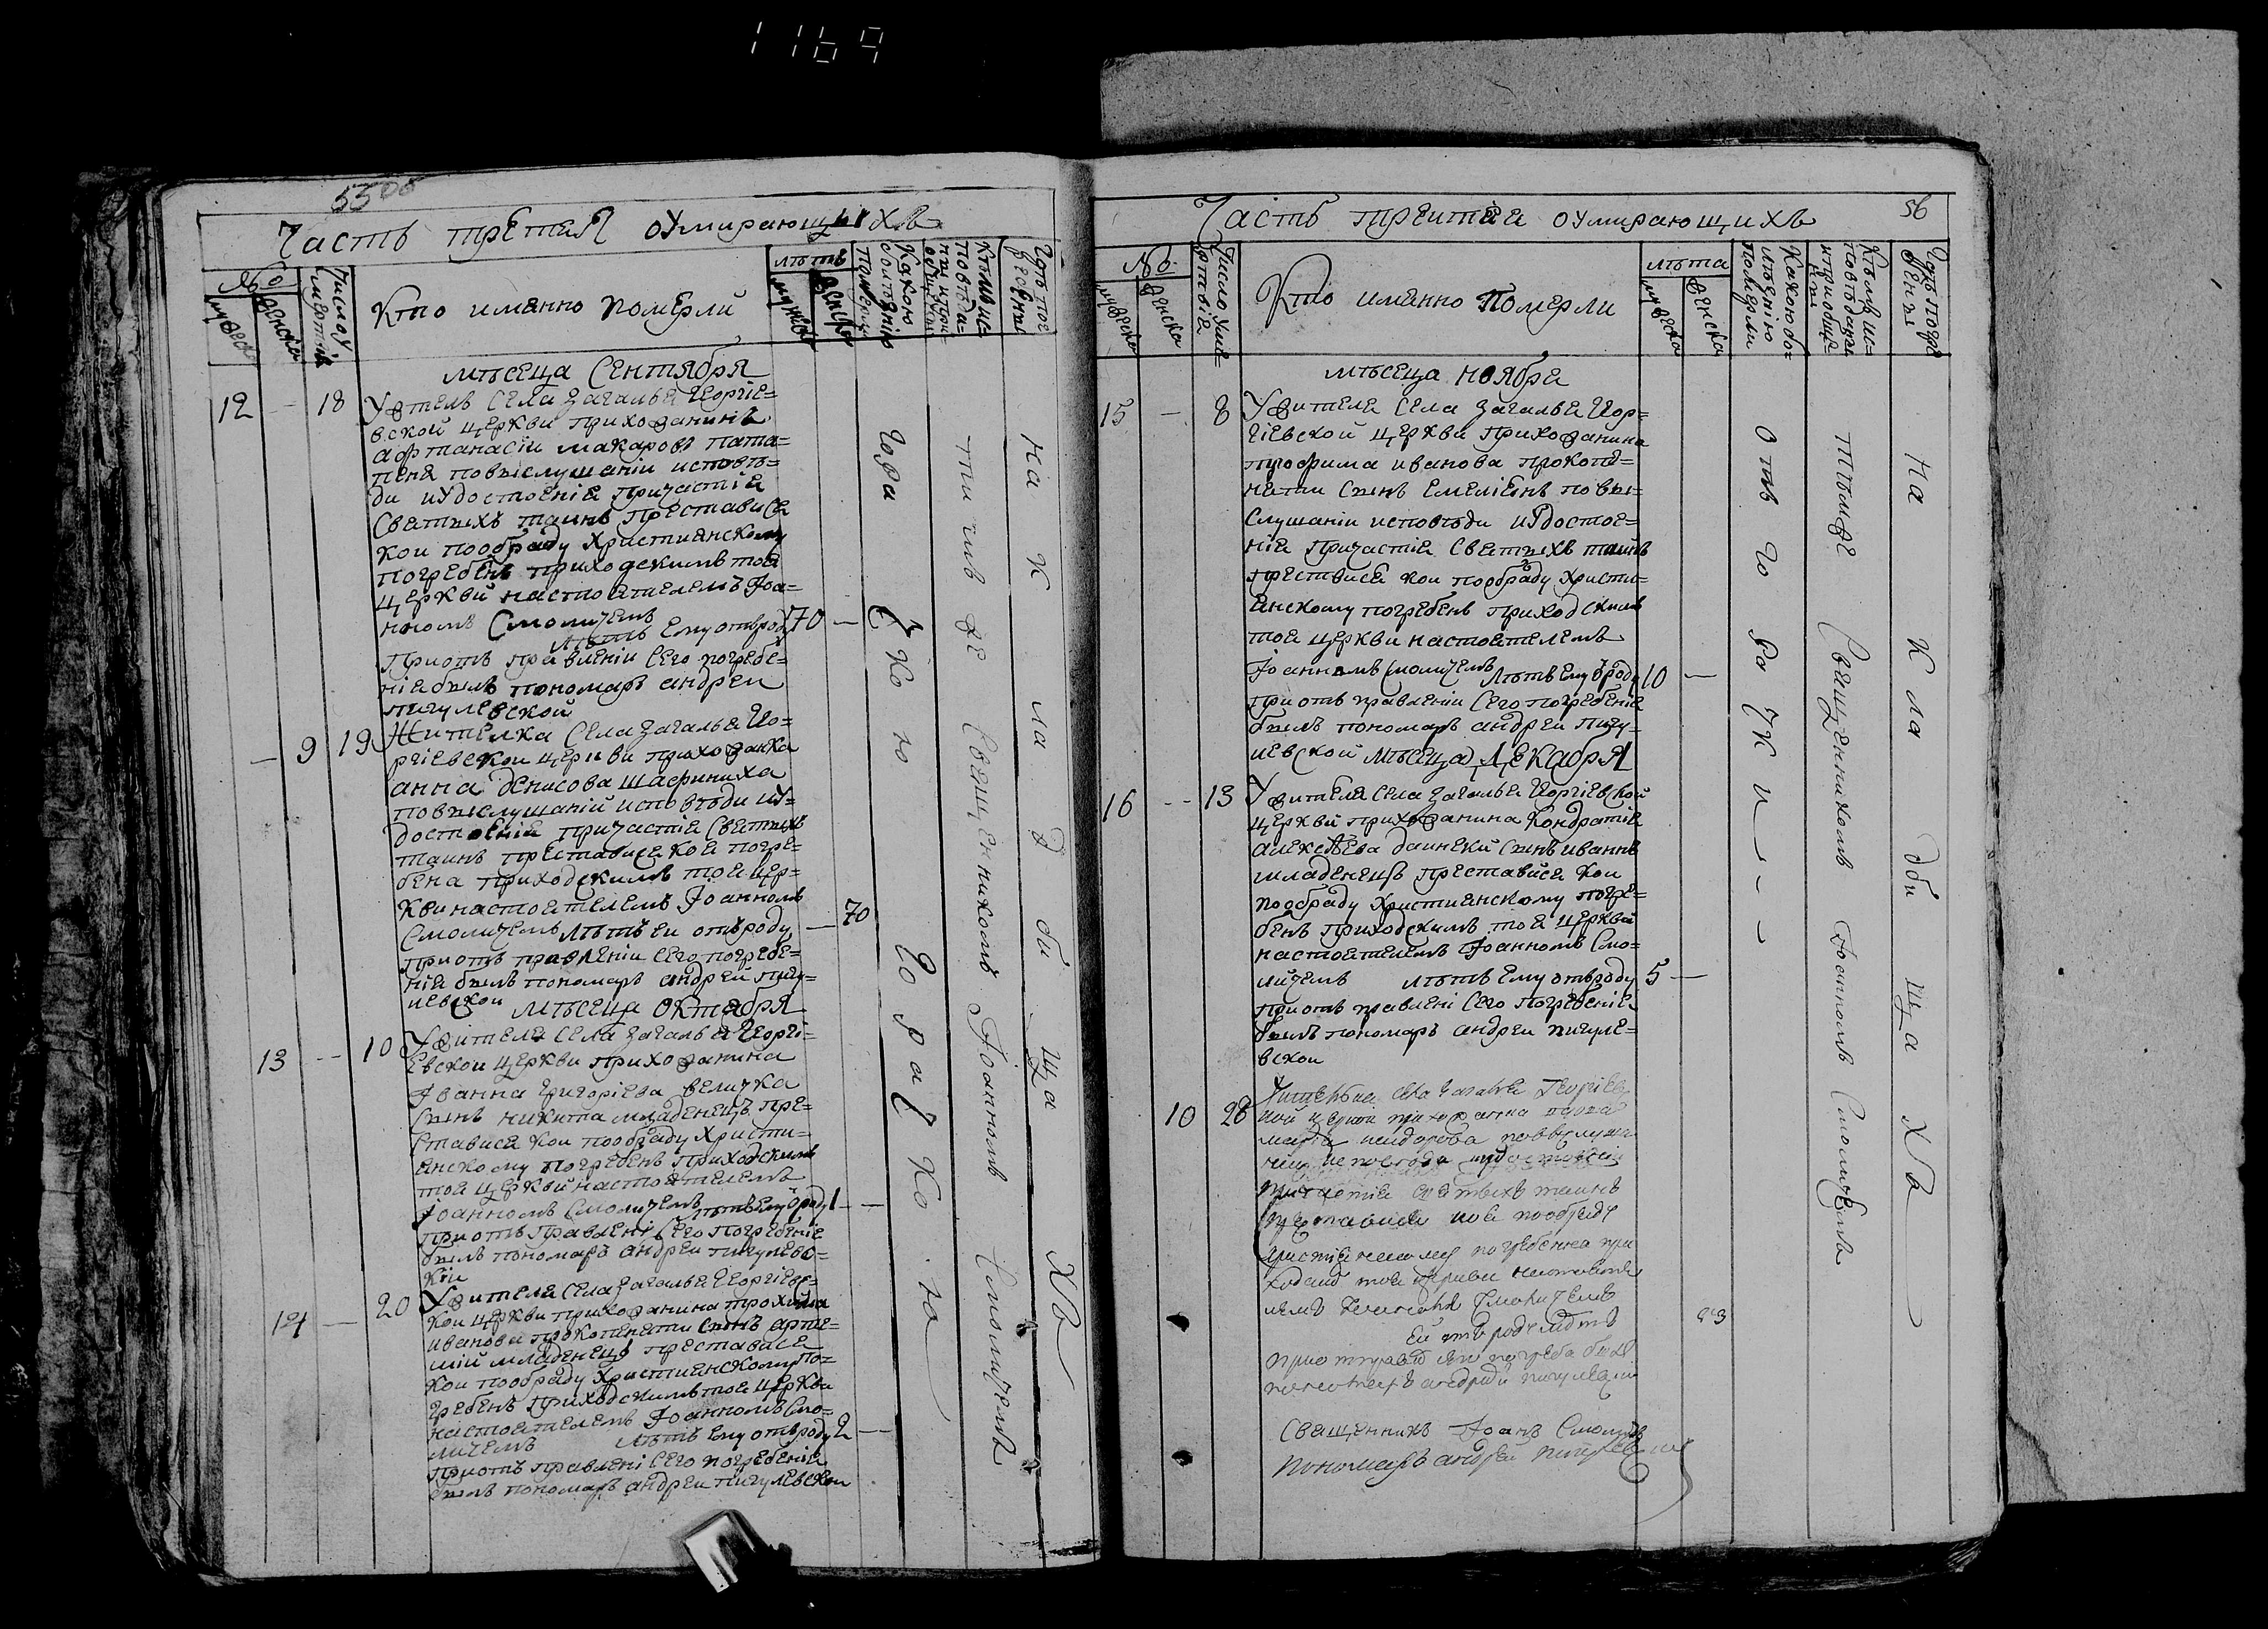 1169
55об
Часть третия оумирающихъ
№о
мужеска
женска
Число у
смертвія
Кто иманно померли
лѣтъ
мужеска
женска
Какою
болѣзнію
померли
Кѣмъ ис-
повѣда-
ни и при-
общени
Гдѣ пог
ребени
мѣсеца Сентября
12 — 18 Ужителъ села загалья Георгіе-
вской церкви прихожанинъ
афтанасіи макаровъ пата-
пеня повыслушаніи исповѣ-
ди иУдостоенія причастія
Светыхъ таинъ преставися
кои пообраду христианскому
погребенъ приходскимъ тоя
церкви настоятелемъ Іоа-
нномъ Смоличемъ
лѣтъ ему отврод 70 —
Приотъ правленіи сего погребе-
нія былъ пономаръ андреи
пигулевской
— 9 19 Жителка села загалья Гео-
ргіевскои церкви прихожанка
анна денисова шаериниха
повыслушаніи исповѣди иУ-
достоенія причастія светыхъ
таинъ преставися коя погре-
бена приходскимъ тоя цер-
кви настоятелемъ Іоанномъ
Смоличемъ лѣтъ еи отвроду — 70
приотъ правленіи сего погребе-
нія былъ пономаръ андреи пигу-
левскои мѣсеца октября
13 -- 10 Ужителя села загалья Георгі-
евскои церкви прихожанина
Іванна григоріева величка
сынъ никита младенецъ пре-
ставися кои пообраду христи-
анскому погребенъ приходскимъ
тоя церкви настоятелемъ
Іоанномъ Смоличемъ лѣтъ ему вроду 1 —
приотъ правлені сего погребеніе
былъ пономаръ андреи пигулевс-
кіи
14 — 20 Ужителя села загалья Георгіевс-
кои церкви прихожанина трохима
иванова прокопенети сынъ арте-
міи младенецъ преставися
кои пообраду христианскому по-
гребенъ приходскимъ тоя церкви
настоятелемъ Іоанномъ Смо-
личемъ лѣтъ ему отвроду 2 —
приотъ правлені сего погребенія
былъ пономаръ андреи пигулевскои
Священникомъ Іоанномъ Смоличемъ
На кладбищахъ
56
Часть третия оумирающихъ
№о
мужеска
женска
Число уме-
ртвія
Кто иманно померли
лѣта
мужеска
женска
Какою бо-
лѣзнію
померли
Кѣмъ ис-
повѣдани
и приобще
ни
Гдѣ погре
бени
мѣсеца ноября
15 — 8 Ужителя села загалья Геор-
гіевской церкви прихожанина
трофима иванова прокопе-
нети сынъ емеліенъ повы-
слушаніи исповѣди иУдостое-
нія причастія светыхъ таинъ
преставися кои пообраду христи-
анскому погребенъ приходскимъ
тоя церкви настоятелемъ
Іоанномъ Смоличемъ лѣтъ ему вроду 10 —
приотъ правленіи сего погребенія
былъ пономаръ андреи пигу-
левской мѣсеца Декабря
16 -- 13 Ужителя села загалья Георгіевской
церкви прихожанина Кондратія
алексѣева сынъ иваннъ
младенецъ преставися кои
пообраду христианскому погре-
бенъ приходскимъ тоя церкви
настоятелемъ Іоанномъ Смо-
личемъ лѣтъ ему отвроду 5 —
приотъ правлені сего погребенія
былъ пономаръ андреи пигуле-
вскои
10 28 села загалья Георгіев
ной церкви прихожанка
исидорова повыслуша
ніи исповѣди иудостоеніи
причастія светыхъ таинъ
преставися коя пообраду
христіянскому погребенна при
ходскимъ тоя церкви настояте
лемъ Смоличемъ
еи отъ роду лѣтъ
погреба былъ
андреи пигулевски
Священникъ Іоанъ Смоличъ
Пономаръ андреи пигулевски
отъ горячки
тѣмже Священникомъ Іоанномъ Смоличемъ
На кладбищахъ